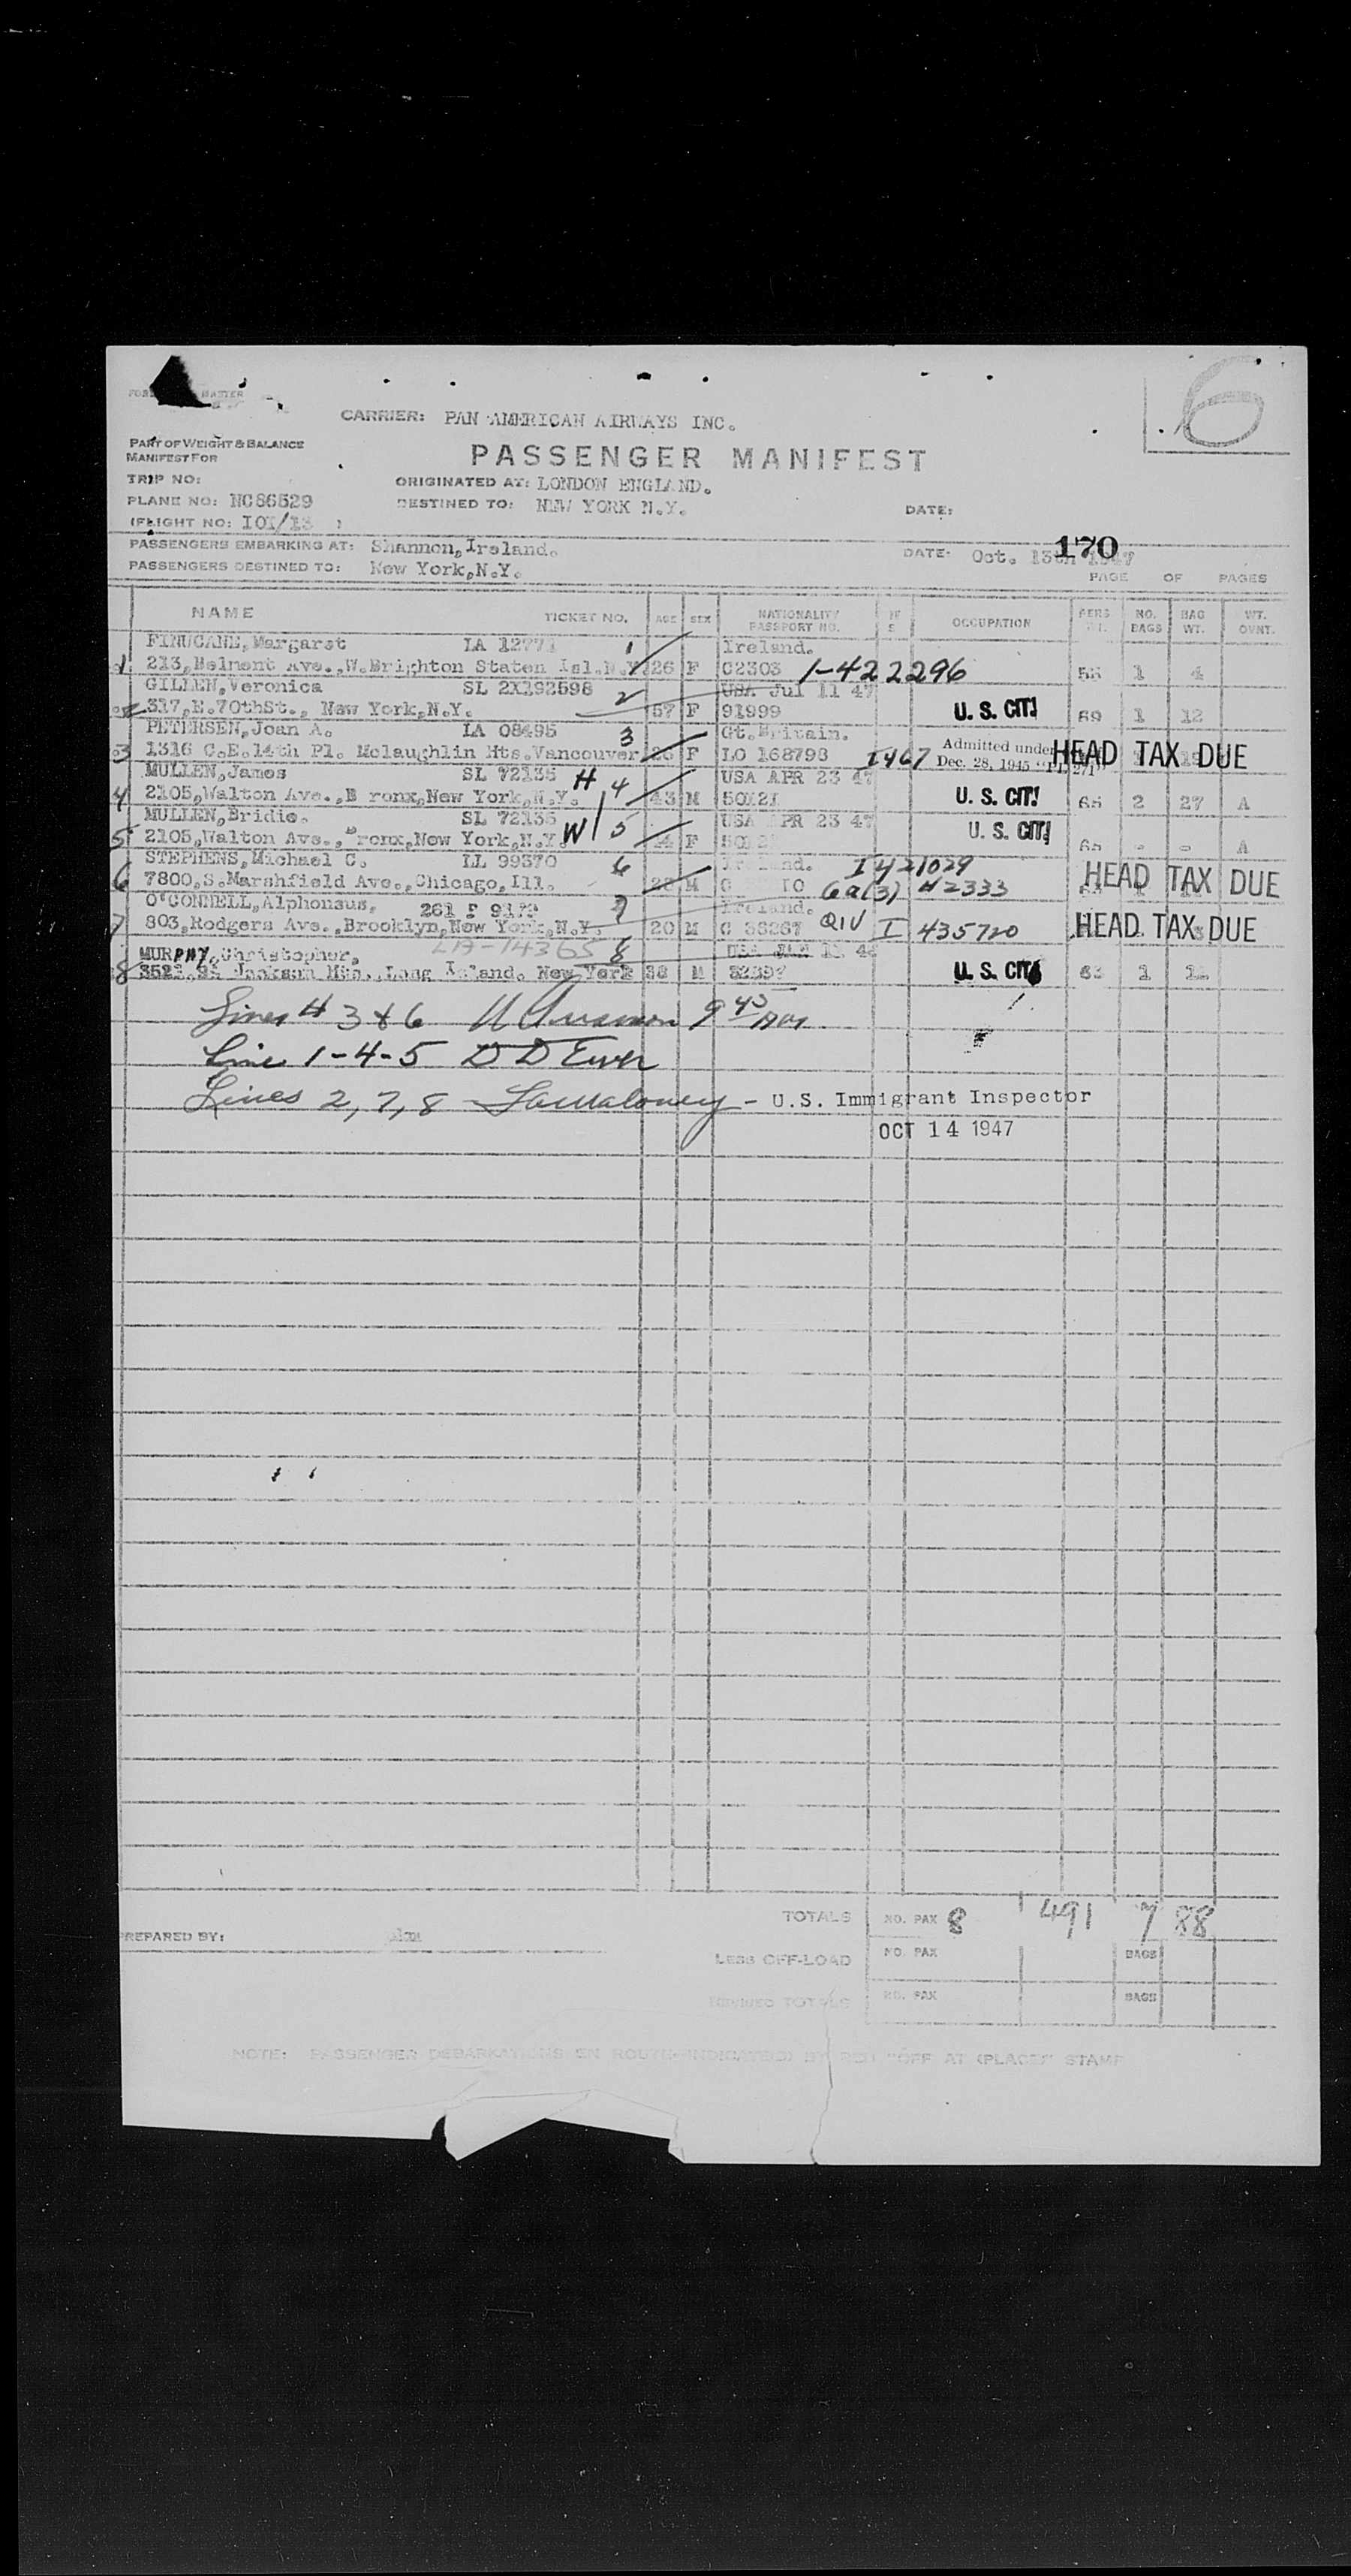 6
CARRIER: PAN AMERICAN AIRWAYS INC.
PART OF WEIGHT & BALANCE
MANIFEST FOR
PASSENGER MANIFEST
TRIP NO:
ORIGINATED AT: LONDON ENGLAND.
PLANE NO: NC86529
DESTINED TO: NEW YORK N.Y.
DATE:
(FLIGHT NO: 101/13 )
PASSENGERS EMBARKING AT: Shannon, Ireland.
DATE: Oct. 13th 1947
170
PASSENGERS DESTINED TO: New York, N.Y.
PAGE OF PAGES
NAME TICKET NO. AGE SEX NATIONALITY PASSPORT NO. OCCUPATION PERS WT. NO. BAGS BAG WT. WT. OVNT.
FINUCANE, Margaret IA 12771 1 Ireland.
1 213, Belmont Ave., W. Brighton Staten Isl. N.Y. 26 F C2303 1-422296 1 4
GILLEN, Veronica SL 2X192598 2 USA Jul 11 47
317, E. 70thSt., New York, N.Y. 57 F 91999 U. S. CIT. 69 1 12
PETERSEN, Joan A. IA 08495 3 Gt. Britain.
3 1316 C.E. 14th Pl. Mclaughlin Hts. Vancouver F LO 168793 I467 Admitted under Dec. 28, 1945 "PL 271" HEAD TAX DUE
MULLEN, James SL 72135 H 4 USA APR 23 47
4 2105, Walton Ave., B ronx, New York, N.Y. 43 M U. S. CIT. 2 27 A
MULLEN, Bridie. SL 72135 W 5 USA APR 23 47
5 2105, Walton Ave., Bronx, New York, N.Y. F U. S. CIT. A
STEPHENS, Michael C. LL 99370 6 Ireland. I 421029
6 7800, S. Marshfield Ave., Chicago, Ill. M 6a(3) #2333 HEAD TAX DUE
O'CONNELL, Alphonsus, 7 Ireland.
7 803, Rodgers Ave., Brooklyn, New York, N.Y. 20 M QIV I 435720 HEAD TAX DUE
MURPHY, Christopher, LA-14365 8
8 Jackson Hts., Long Island. New York M U. S. CIT 1
Lines # 3 & 6 9 45 AM
Line 1-4-5 D D Ewer
Lines 2, 7, 8 - Maloney - U.S. Immigrant Inspector
OCT 14 1947
TOTALS NO. PAX 8 491 7 88
PREPARED BY:
LESS OFF-LOAD NO. PAX BAGS
REVISED TOTALS NO. PAX BAGS
NOTE: PASSENGER DEBARKATIONS EN ROUTE INDICATED BY RED "OFF AT (PLACE)" STAMP